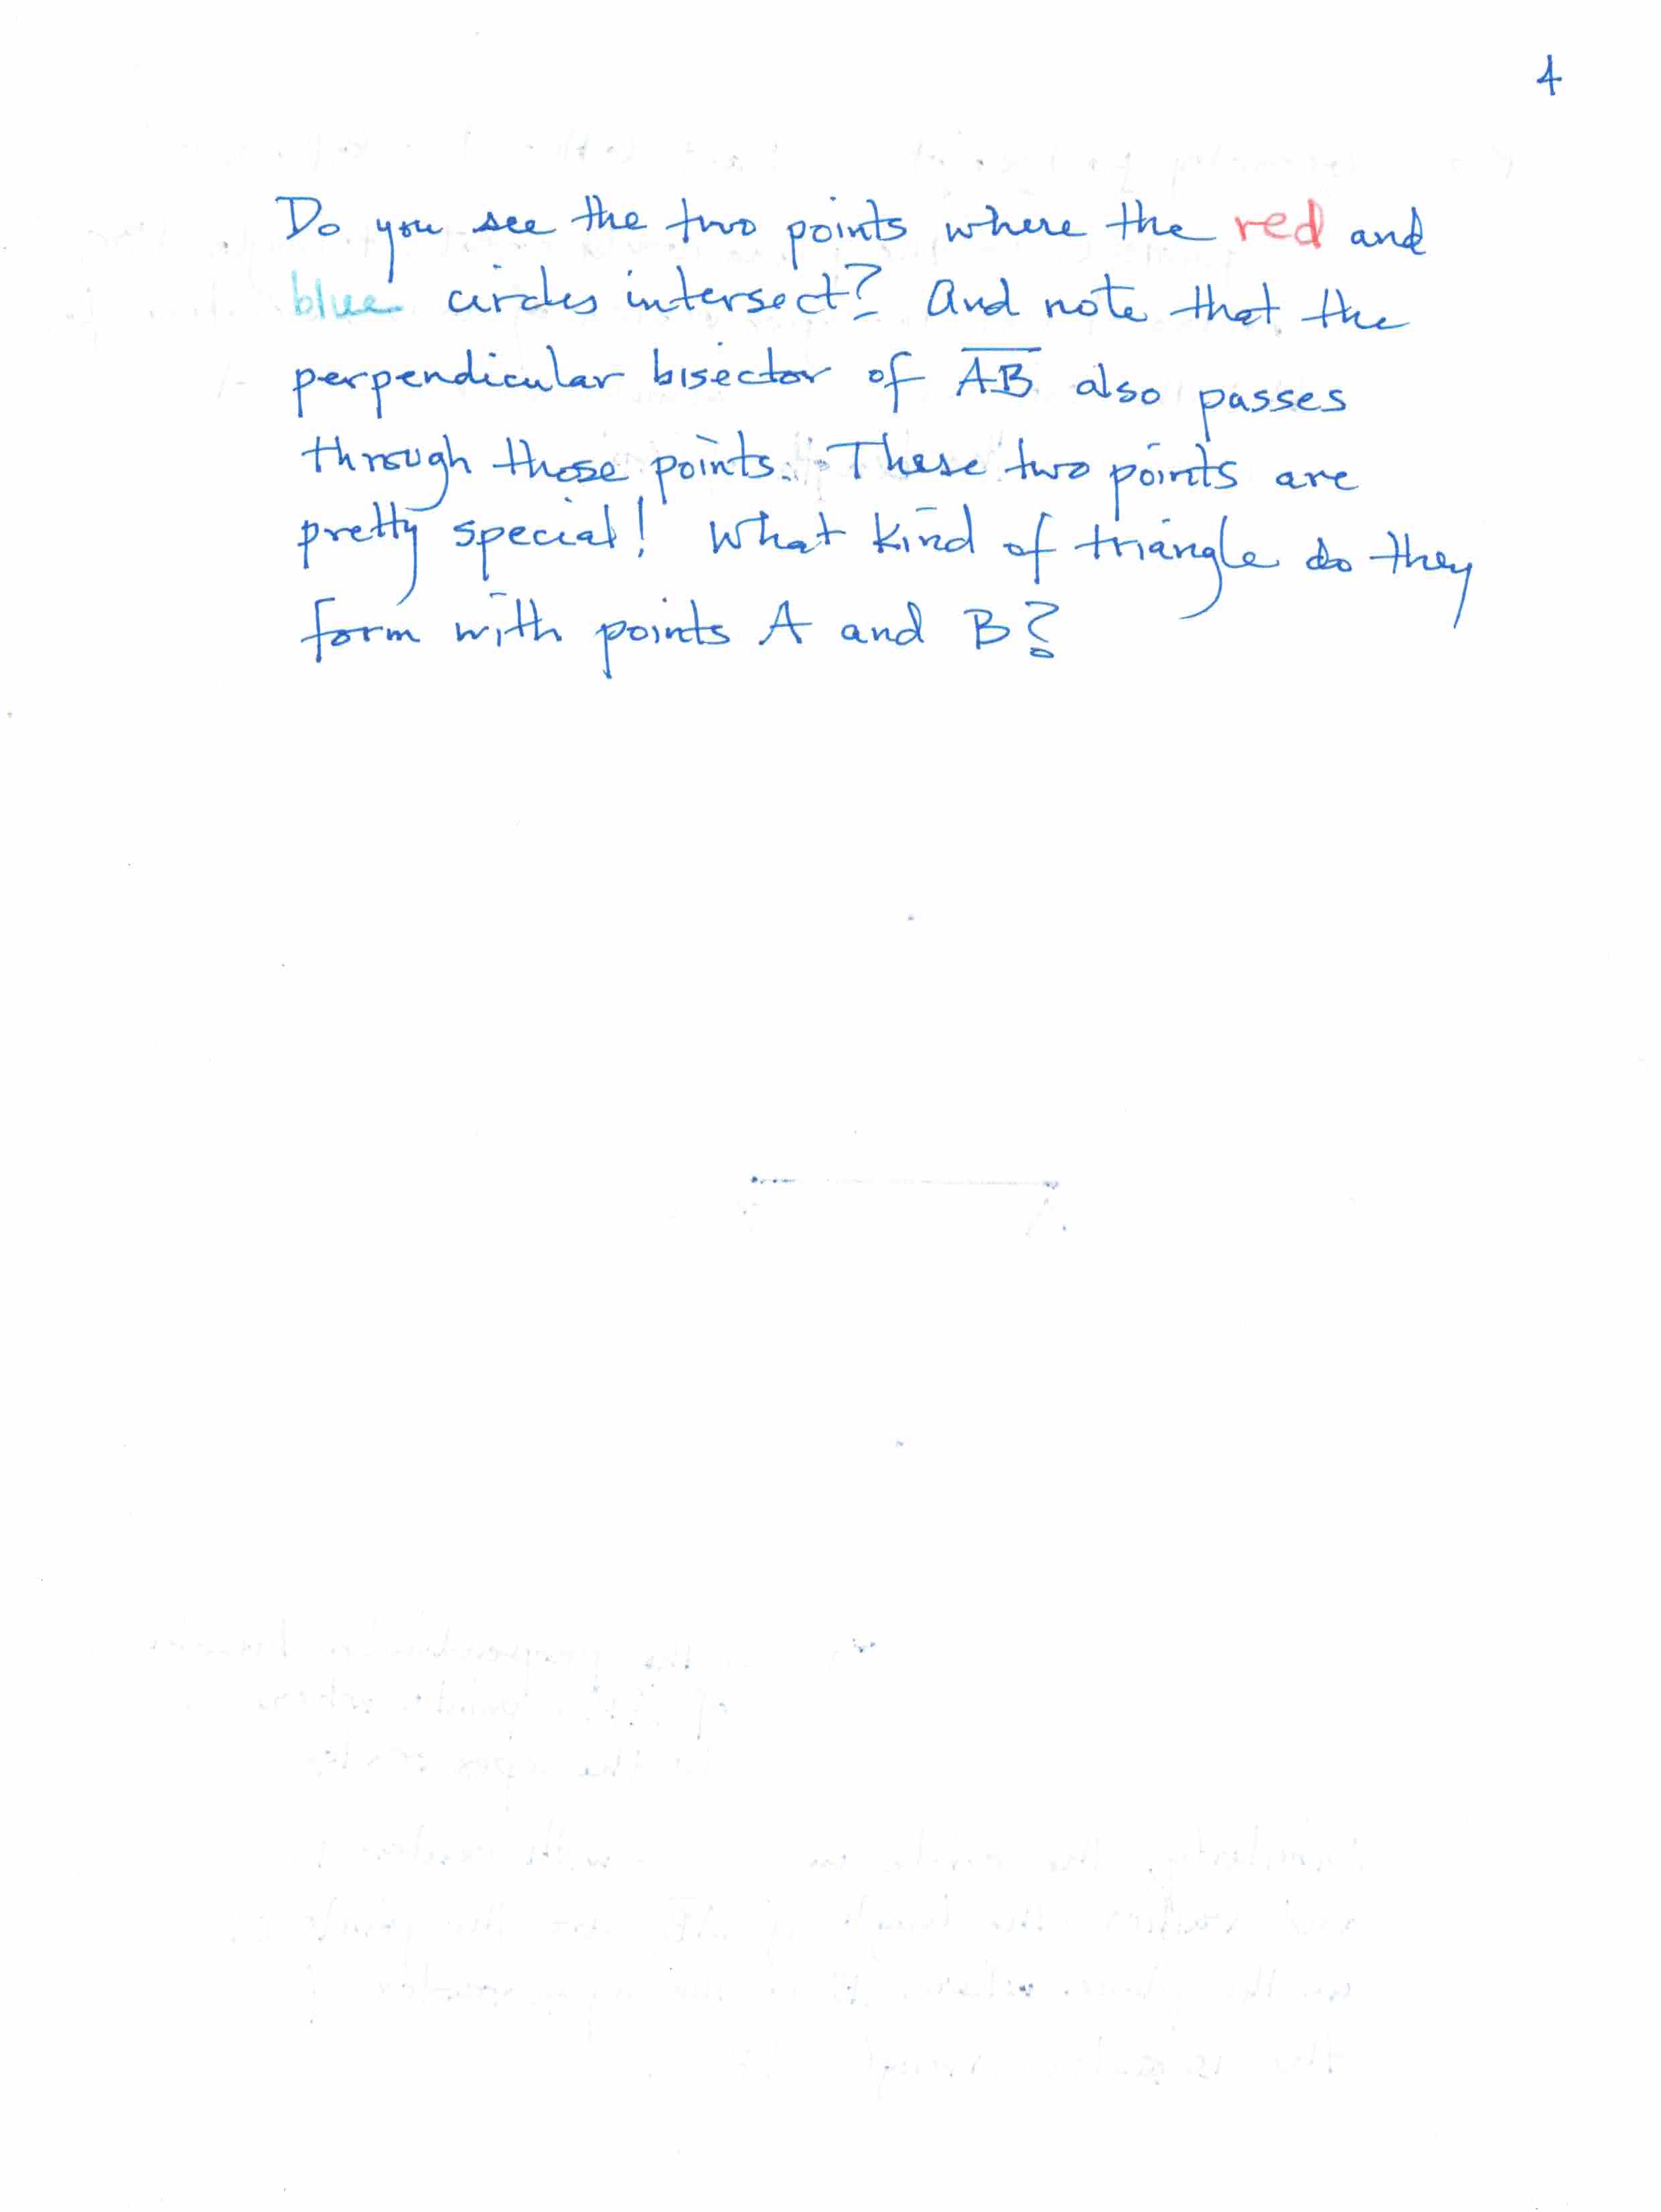 4
Do you see the two points where the red and
blue circles intersect? And note that the
perpendicular bisector of AB also passes
through those points. These two points are
pretty special! What kind of triangle do they
form with points A and B?